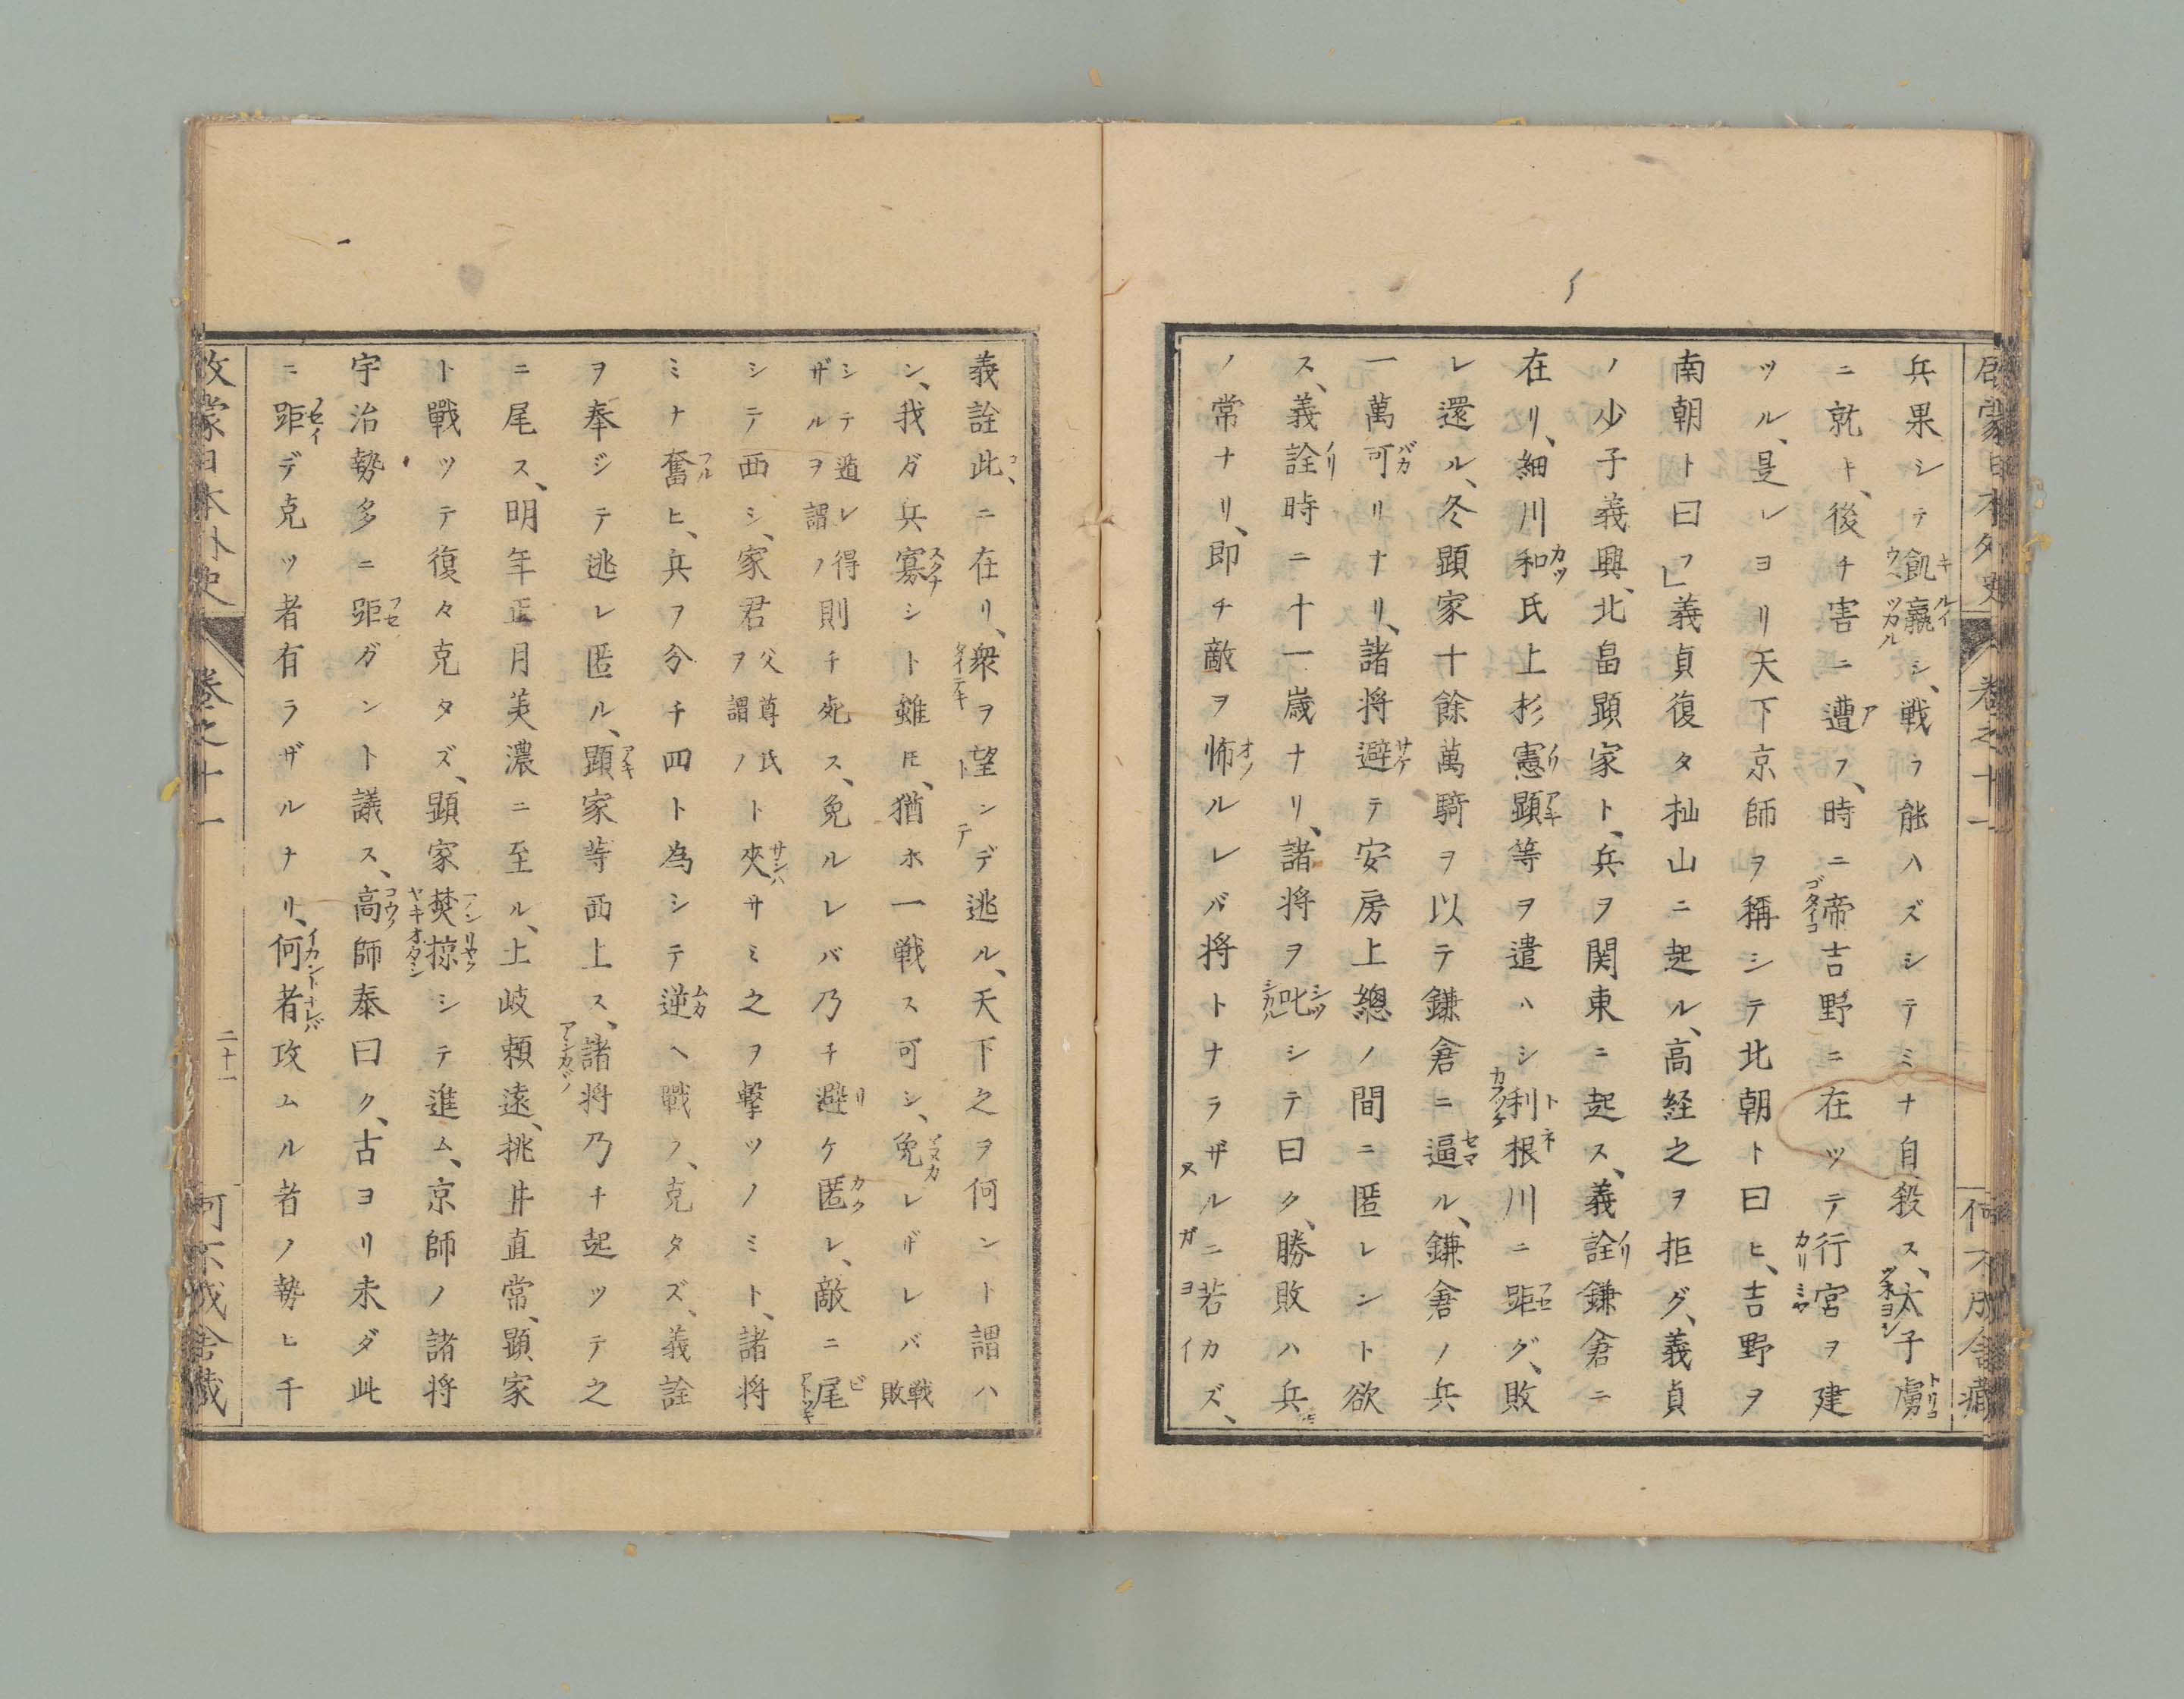 兵果シテ飢羸シ、戦フ能ハズシテミナ自殺ス、太子虜
ニ就キ、後チ害ニ遭フ、時ニ帝吉野ニ在ツテ行宮ヲ建
ツル、是レヨリ天下京師ヲ稱シテ北朝ト曰ヒ、吉野ヲ
南朝ト曰フ」義貞復タ杣山ニ起ル、高経之ヲ拒グ、義貞
ノ少子義興、北畠顕家ト、兵ヲ関東ニ起ス、義詮鎌倉ニ
在リ、細川和氏上杉憲顕等ヲ遣ハシ利根川ニ距グ、敗
レ還ル、冬顕家十餘萬騎ヲ以テ鎌倉ニ逼ル、鎌倉ノ兵
一萬可リナリ、諸将避テ安房上總ノ間ニ匿レント欲
ス、義詮時ニ十一歳ナリ、諸将ヲ叱シテ曰ク、勝敗ハ兵
ノ常ナリ、即チ敵ヲ怖ルレバ将トナラザルニ若カズ、
義詮此ニ在リ、衆ヲ望ンデ逃ル、天下之ヲ何ント謂ハ
ン、我ガ兵寡シト雖ㇳモ、猶ホ一戦ス可シ、免レザレバ戦敗
シテ遁レ得ザルヲ謂ノ則チ死ス、免ルレバ乃チ避ケ匿レ、敵ニ尾
シテ西シ、家君父尊氏ヲ謂ノト夾サミ之ヲ撃ツノミト、諸将
ミナ奮ヒ、兵ヲ分チ四ト為シテ逆ヘ戰フ、克タズ、義詮
ヲ奉ジテ逃レ匿ル、顕家等西上ス、諸将乃チ起ツテ之
ニ尾ス、明年正月美濃ニ至ル、土岐頼遠、挑井直常、顕家
ト戰ツテ復々克タズ、顕家焚掠シテ進ム、京師ノ諸将
宇治勢多ニ距ガント議ス、高師泰曰ク、古ヨリ未ダ此
ニ距デ克ツ者有ラザルナリ、何者攻ムル者ノ勢ヒ千
卷之十一
二十一